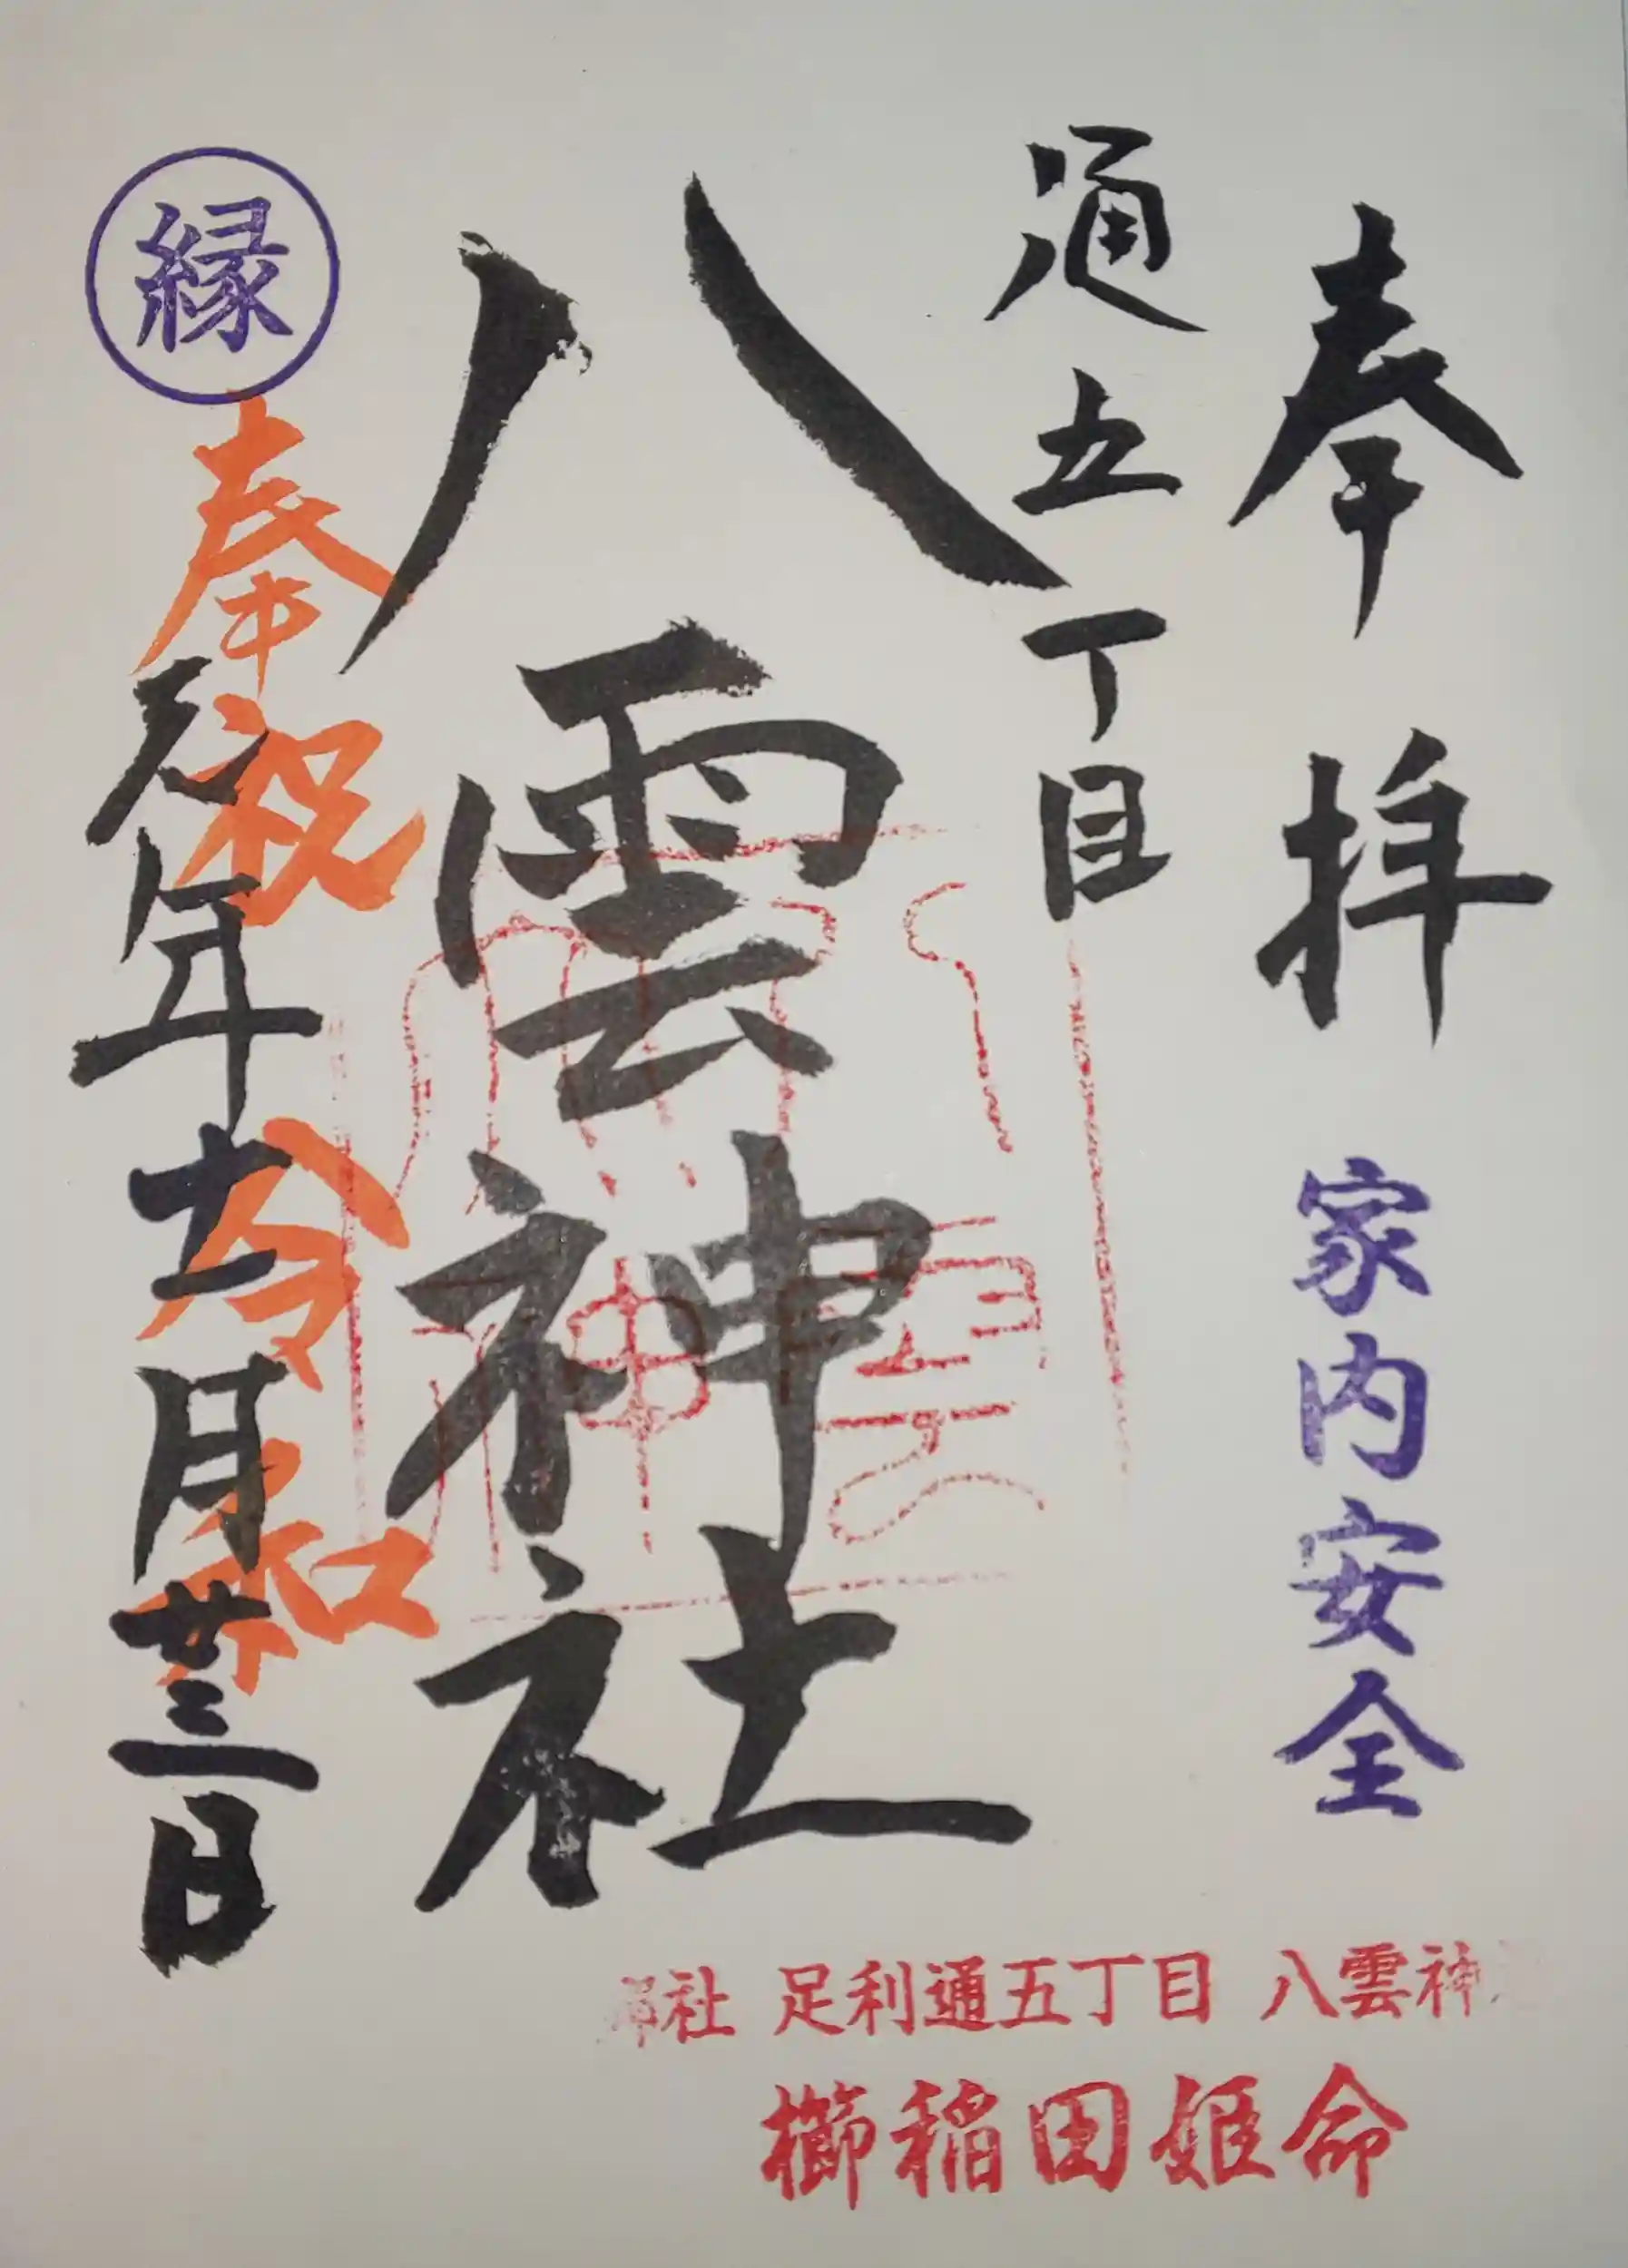 奉拝
家内安全
通五丁目
八雲神社
縁
奉祝
令和
元年十一月廿三日
社 足利通五丁目 八雲神
櫛稲田姫命